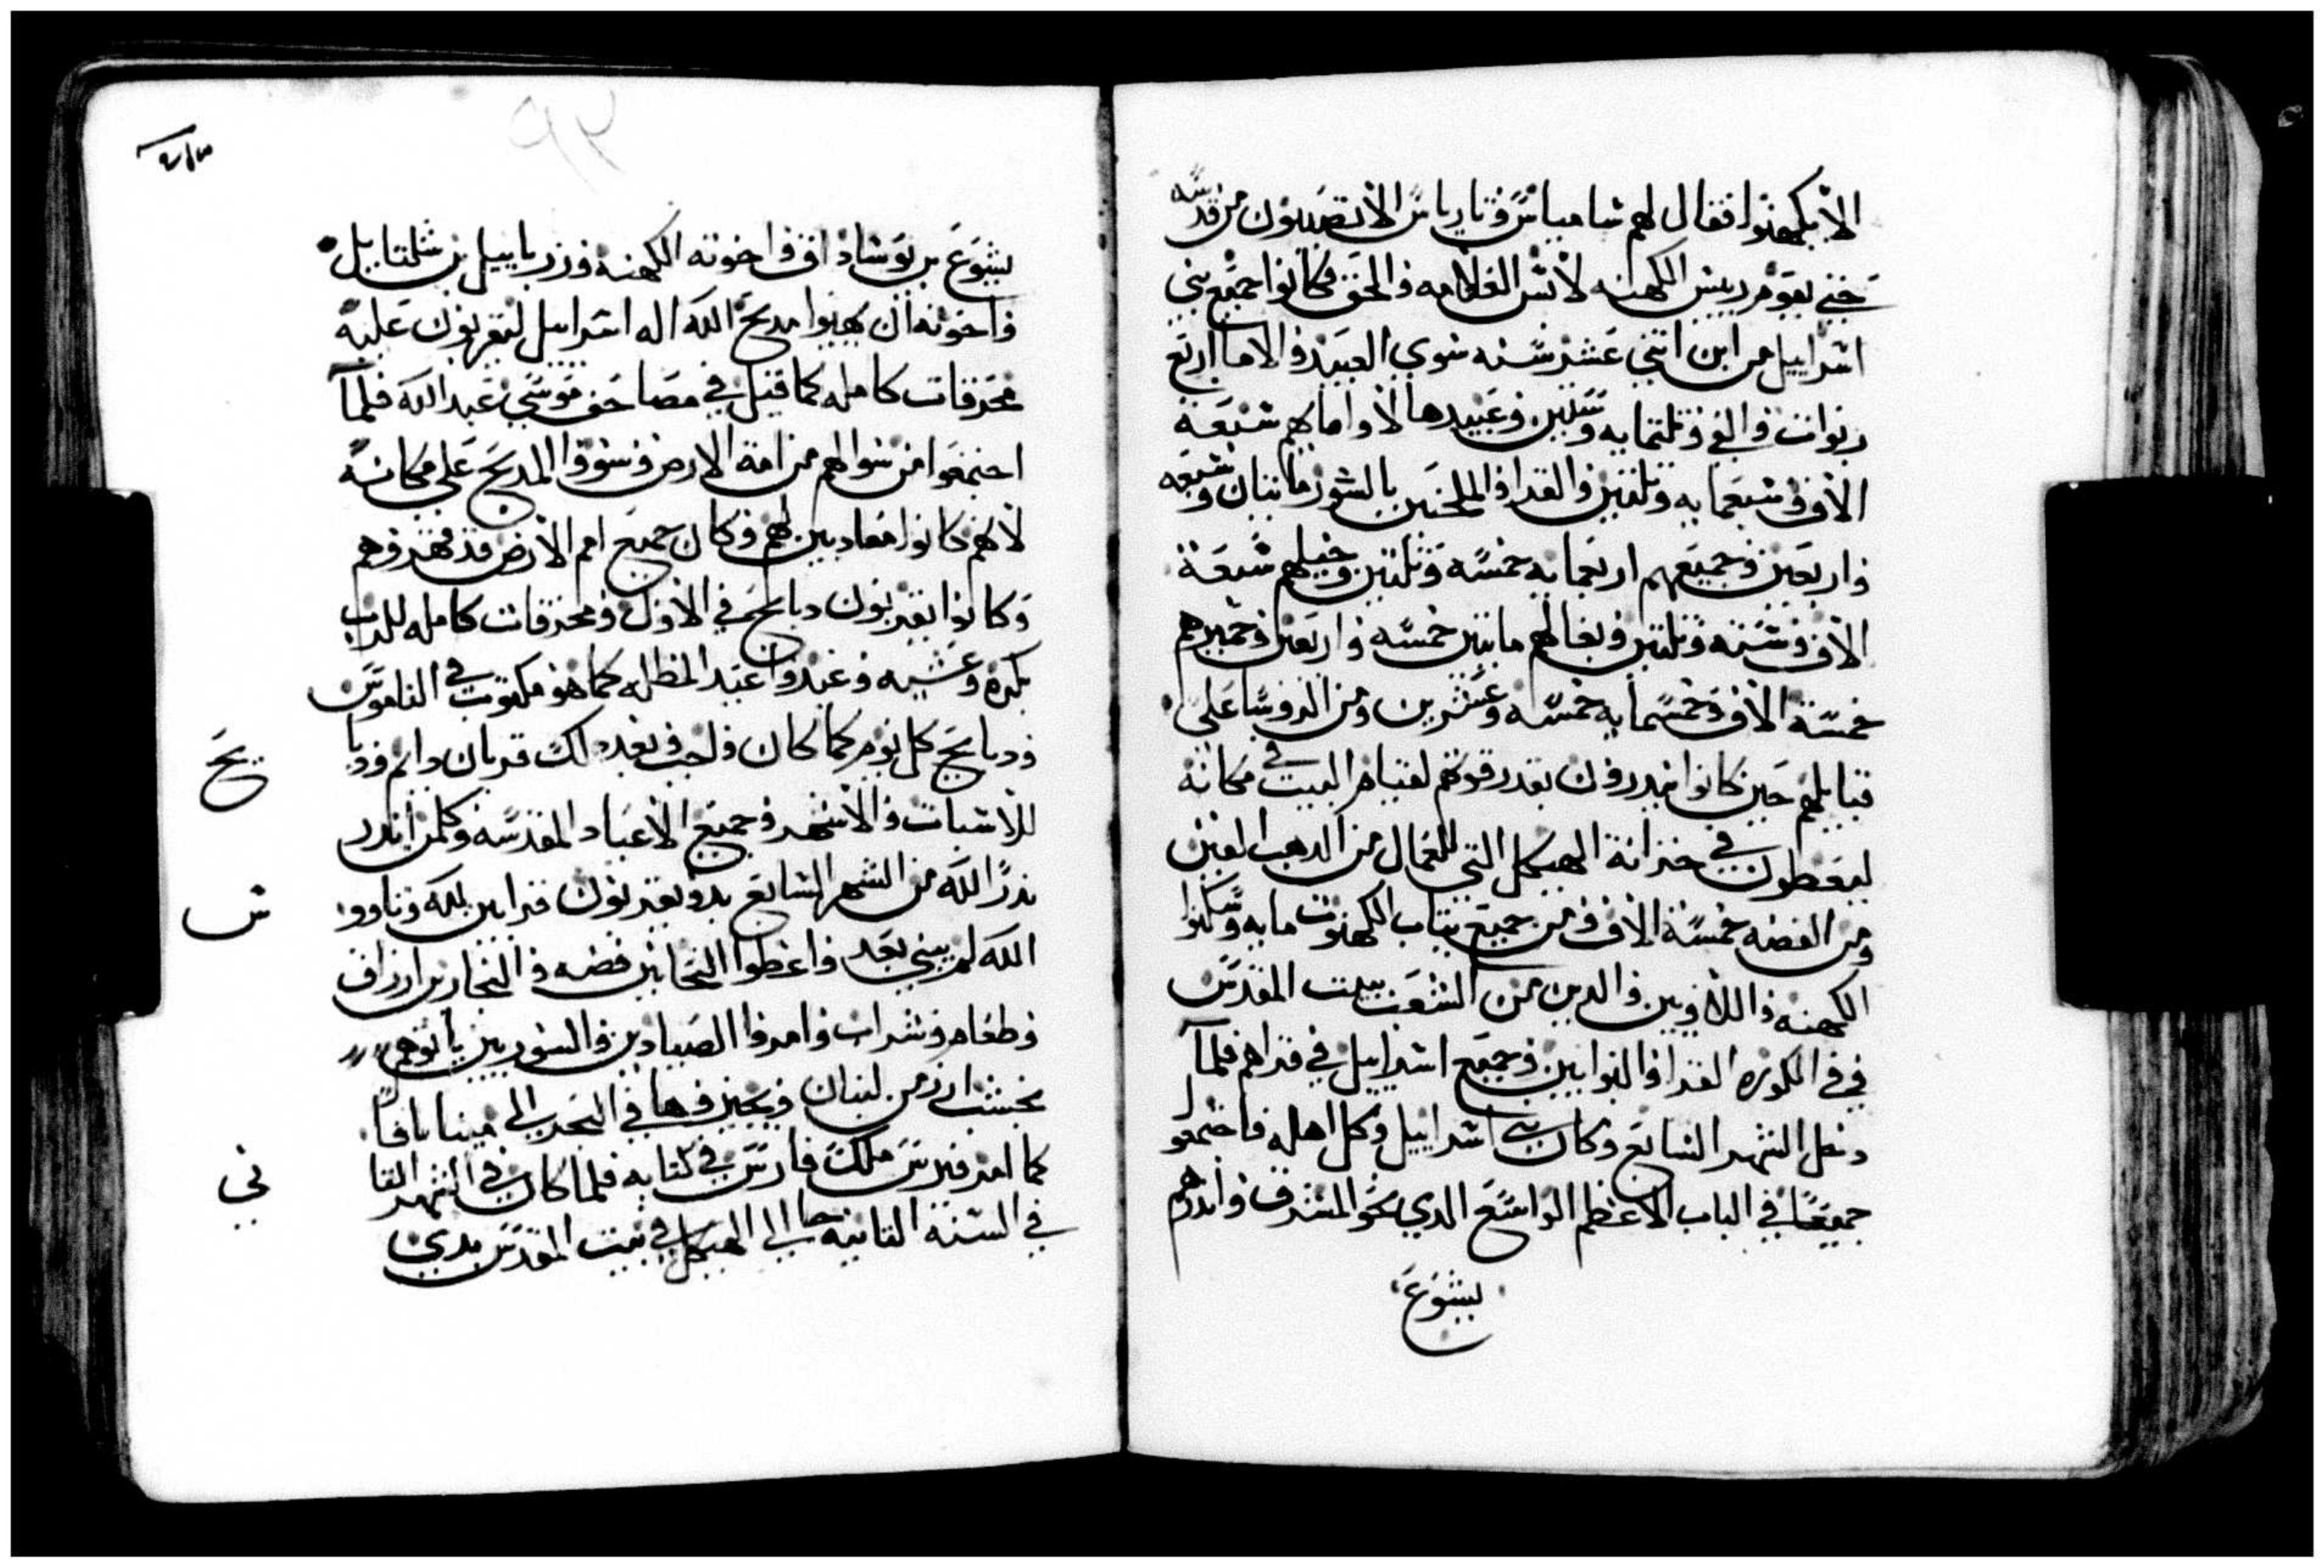 الا يكهنوا فقال لهم شامياس وتارياس الا تصيبون من قدسه
حتي يقوم رييس الكهنه لابس الغلامه والحق فكانوا جميع بني
اسراييل من ابن اتني عشر سنه سوي العبيد والاما اربع
ربوات والفي وتلتمايه وستين وعبيدها لاو امايهم سبعة
الاف وسبعمايه وتلتين والقرا والملحنين بالسور مايتان وسبعه
واربعين وجميعهم اربعمايه خمسه وتلتين وخيلهم سبعة
الاف وسته وتلتين وبغالهم مايتين خمسه واربعين وحميرهم
خمسة الاف وخمسمايه خمسه وعشرين ومن الروسا علي
قبايلهم حين كانوا يندرون بقدر قوتهم لقيام البيت في مكانه
ليعطون في خزانة الهيكل التي للعمال من الدهب الفين
ومن الفضه خمسة الاف ومن جميع تياب الكهنوت مايه وسكنوا
الكهنه واللاويين والدين من الشعب ببيت المقدس
وفي الكوره القرا والبوابين وجميع اسراييل في قراهم فلما
دخل الشهر السابع وكان بني اسراييل وكل اهله فاجتمعو
جميعا في الباب الاعظم الواسع الدي نحو المشرق واندرهم
يشوع
يشوع بن يوشاداق واخوته الكهنه وزربابيل بن شلتاييل
واخوته ان يهيوا مدبح الله اله اسراييل ليقربون عليه
محرقات كامله كما قيل في مصاحف موسي عبد الله فلما
اجتمعوا من سوالهم من امة الارض وسووا المدبح علي مكانه
لانهم كانوا معاديين لهم وكان جميع امم الارض قد قهروهم
وكانوا يقربون دبايح في الاول ومحرقات كامله للرب
بكره وعشيه وعيدوا عيد المظله كما هو مكتوب في الناموس
ودبايح كل يوم كما كان واجب وبعد دلك قربان دايم ودبا
يح
للاسبات والاشهر وجميع الاعياد المقدسه وكلمن اندر
ندرا لله من الشهر السابع بدو يقربون قرابين لله وناوو
س
الله لم يبني بعد واعطوا النحاتين فضه والنجارين ارزاق
وطعام وشراب وامروا الصيادين والسوريين ياتوهم
بخشب ارز من لبنان ويجيزوها في البحر الي مينا يافا
كما امر قيرس ملك فارس في كتابه فلما كان في الشهر التا
ني
في السنه التانيه جا الي الهيكل في بيت المقدس بدي